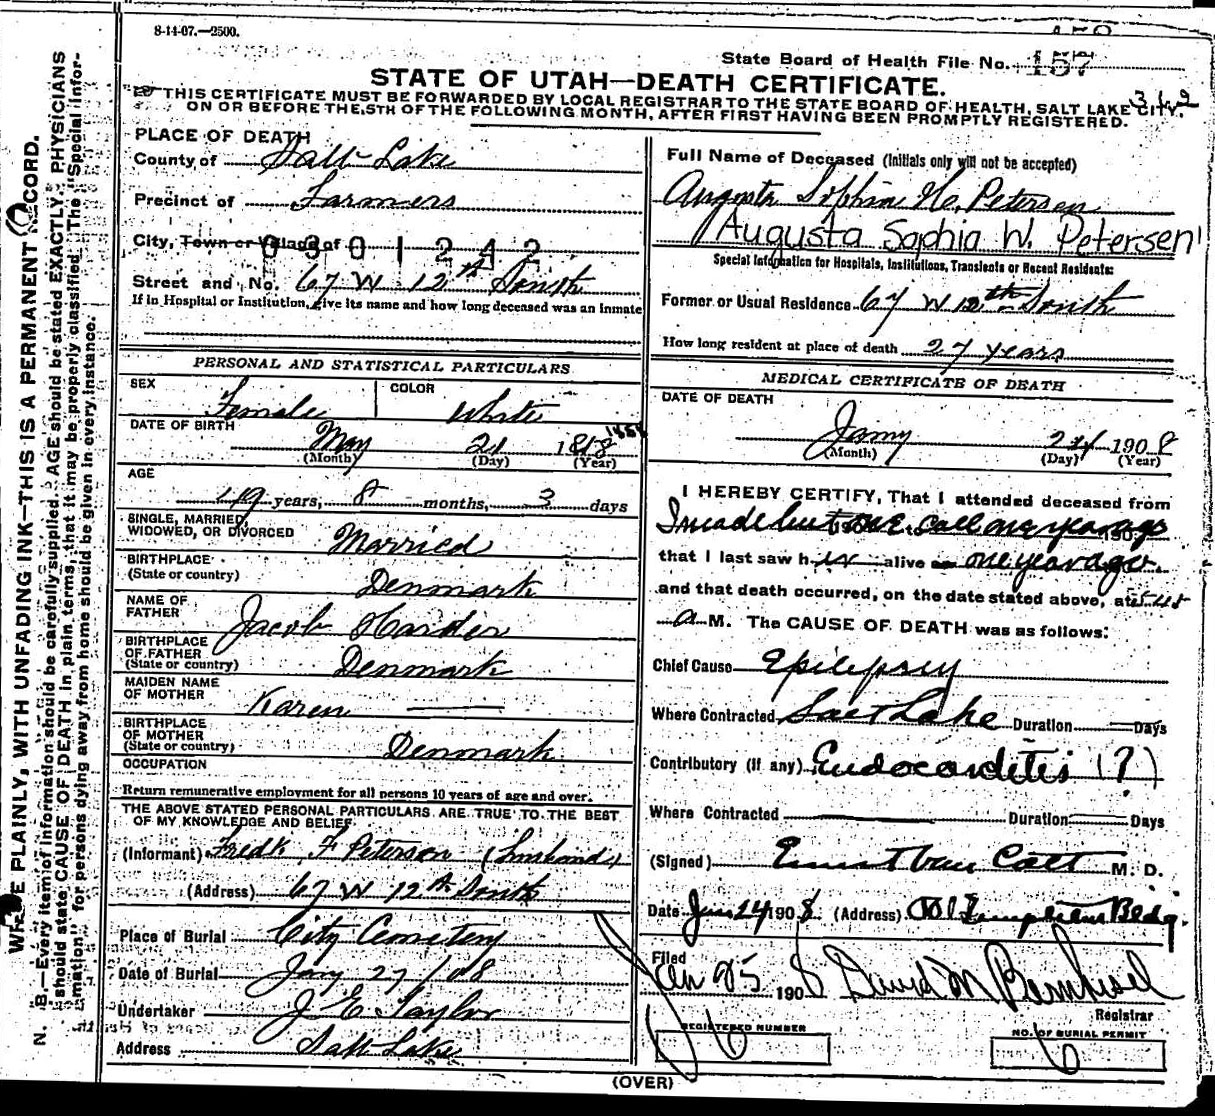 8-14-07.—2500.
State Board of Health File No. 157
STATE OF UTAH—DEATH CERTIFICATE.
THIS CERTIFICATE MUST BE FORWARDED BY LOCAL REGISTRAR TO THE STATE BOARD OF HEALTH, SALT LAKE CITY,
ON OR BEFORE THE 5TH OF THE FOLLOWING MONTH, AFTER FIRST HAVING BEEN PROMPTLY REGISTERED.
WRITE PLAINLY, WITH UNFADING INK—THIS IS A PERMANENT RECORD.
N. B.—Every item of information should be carefully supplied. AGE should be stated EXACTLY. PHYSICIANS
should state CAUSE OF DEATH in plain terms, that it may be properly classified. The "Special infor-
mation" for persons dying away from home should be given in every instance.
PLACE OF DEATH
County of Salt Lake
Precinct of Farmers
City, Town or Village of 0301242
Street and No. 67 W 12th South
If in Hospital or Institution, give its name and how long deceased was an inmate
PERSONAL AND STATISTICAL PARTICULARS
SEX Female COLOR White
DATE OF BIRTH May 21 1858
(Month) (Day) (Year)
AGE
49 years, 8 months, 3 days
SINGLE, MARRIED,
WIDOWED, OR DIVORCED Married
BIRTHPLACE
(State or country) Denmark
NAME OF
FATHER Jacob Harder
BIRTHPLACE
OF FATHER
(State or country) Denmark
MAIDEN NAME
OF MOTHER Karen
BIRTHPLACE
OF MOTHER
(State or country) Denmark
OCCUPATION
Return remunerative employment for all persons 10 years of age and over.
THE ABOVE STATED PERSONAL PARTICULARS ARE TRUE TO THE BEST
OF MY KNOWLEDGE AND BELIEF
(Informant) Fredk F Peterson (husband)
(Address) 67 W 12th South
Place of Burial City Cemetery
Date of Burial Jany 27 / 08
Undertaker J E Taylor
Address Salt Lake
Full Name of Deceased (Initials only will not be accepted)
Augusta Sophia H. Petersen
Augusta Sophia W. Petersen
Special Information for Hospitals, Institutions, Transients or Recent Residents:
Former or Usual Residence 67 W 12th South
How long resident at place of death 27 years
MEDICAL CERTIFICATE OF DEATH
DATE OF DEATH
Jany 24 1908
(Month) (Day) (Year)
I HEREBY CERTIFY, That I attended deceased from
I made but one call one year ago
that I last saw her alive on one year ago
and that death occurred, on the date stated above, at 5 45
a M. The CAUSE OF DEATH was as follows:
Chief Cause Epilepsey
Where Contracted Salt Lake Duration Days
Contributory (if any) Endocarditis (?)
Where Contracted Duration Days
(Signed) Ernest Van Cott M. D.
Date Jan 24 1908 (Address) Templeton Bldg.
Filed
Jan 25 1908 David M
Registrar
REGISTERED NUMBER
NO. OF BURIAL PERMIT
(OVER)